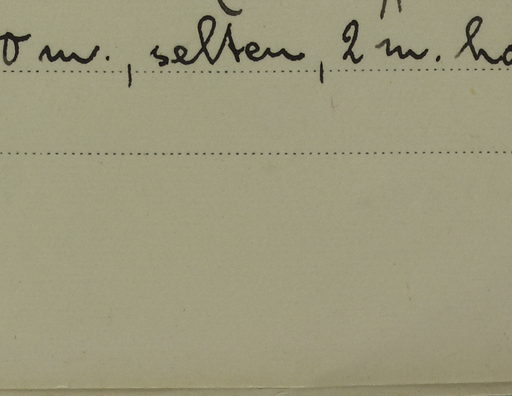 0 m., selten, 2 m. ho